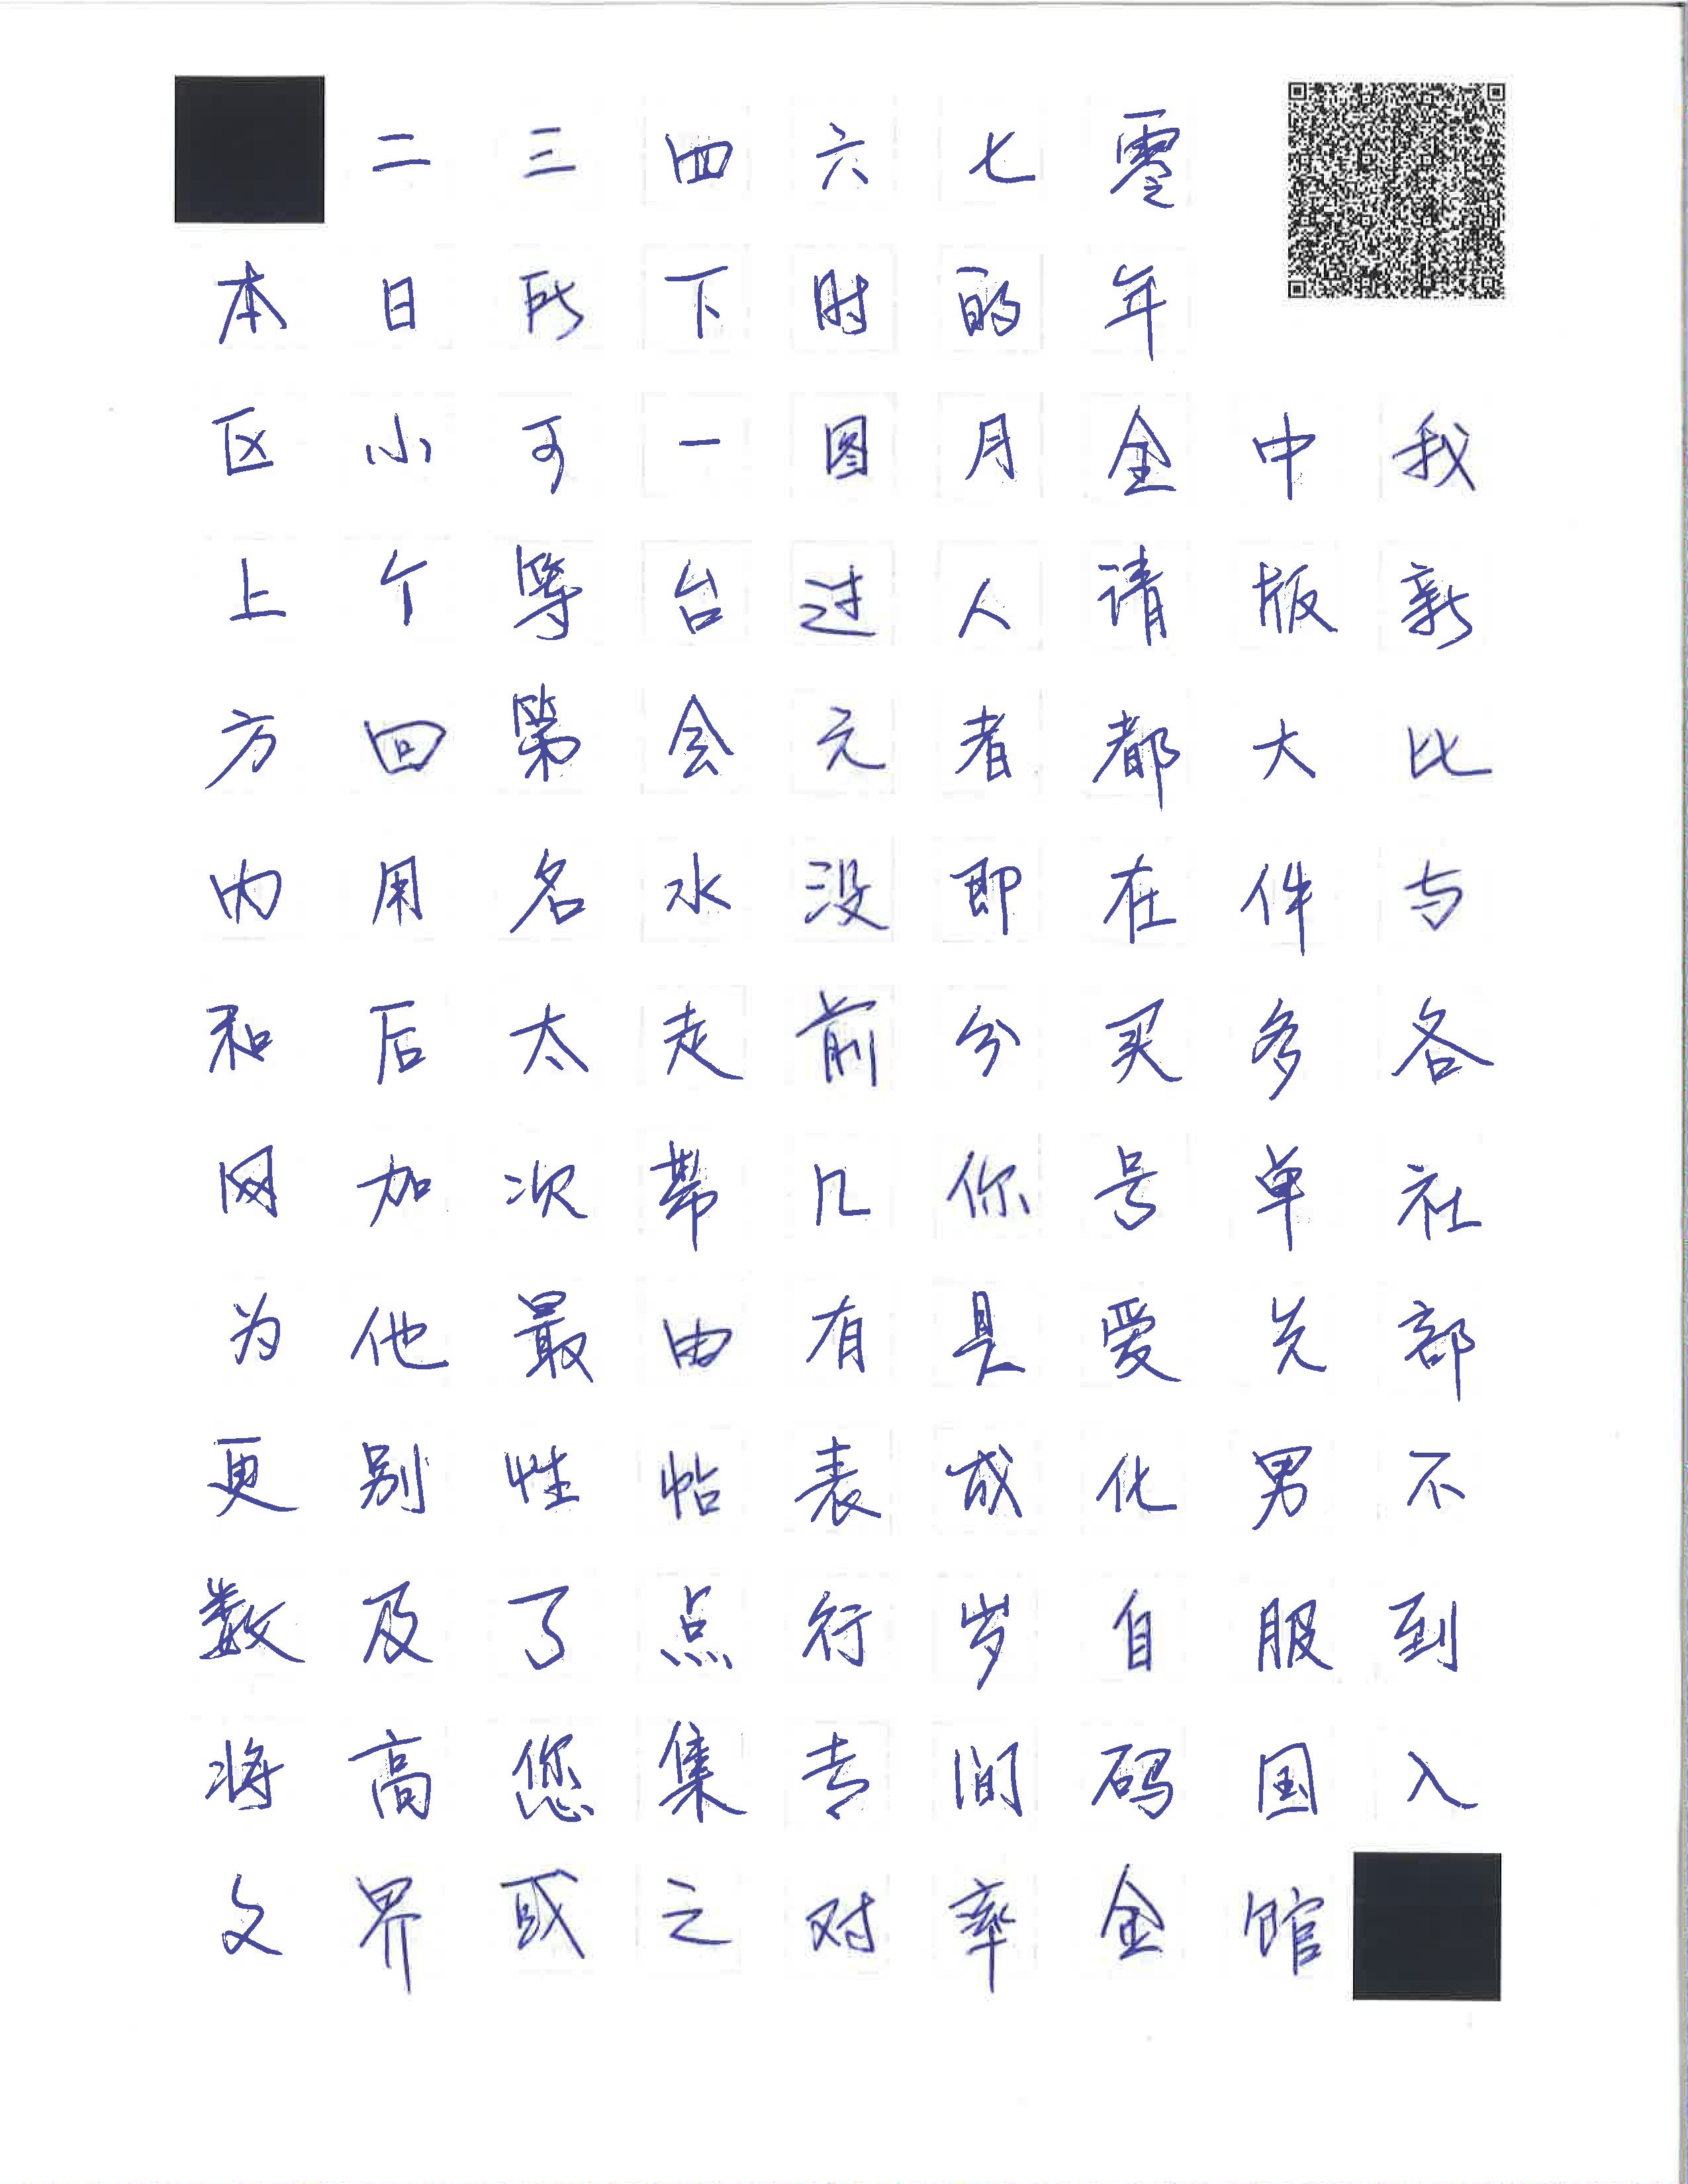 二 三 四 六 七 零
本 日 所 下 时 的 年
区 小 可 一 图 月 全 中 我
上 个 等 台 过 人 请 版 新
方 回 第 会 元 者 都 大 比
内 用 名 水 没 即 在 件 与
和 后 太 走 前 分 买 多 各
网 加 次 带 几 你 号 单 社
为 他 最 由 有 县 爱 先 部
更 别 性 帖 表 成 化 男 不
数 及 了 点 行 岁 自 服 到
将 高 您 集 专 间 码 国 入
文 界 或 之 对 率 金 馆